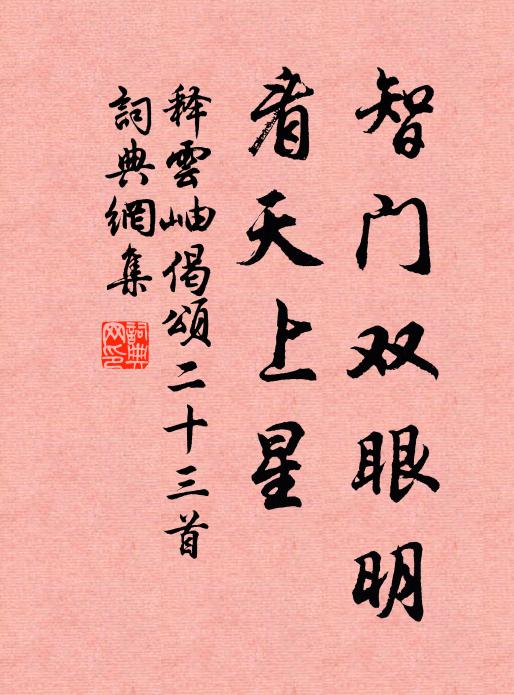 智门双眼明
看天上星
释雲岫偈頌二十三首
詞典網集
詞典
网印